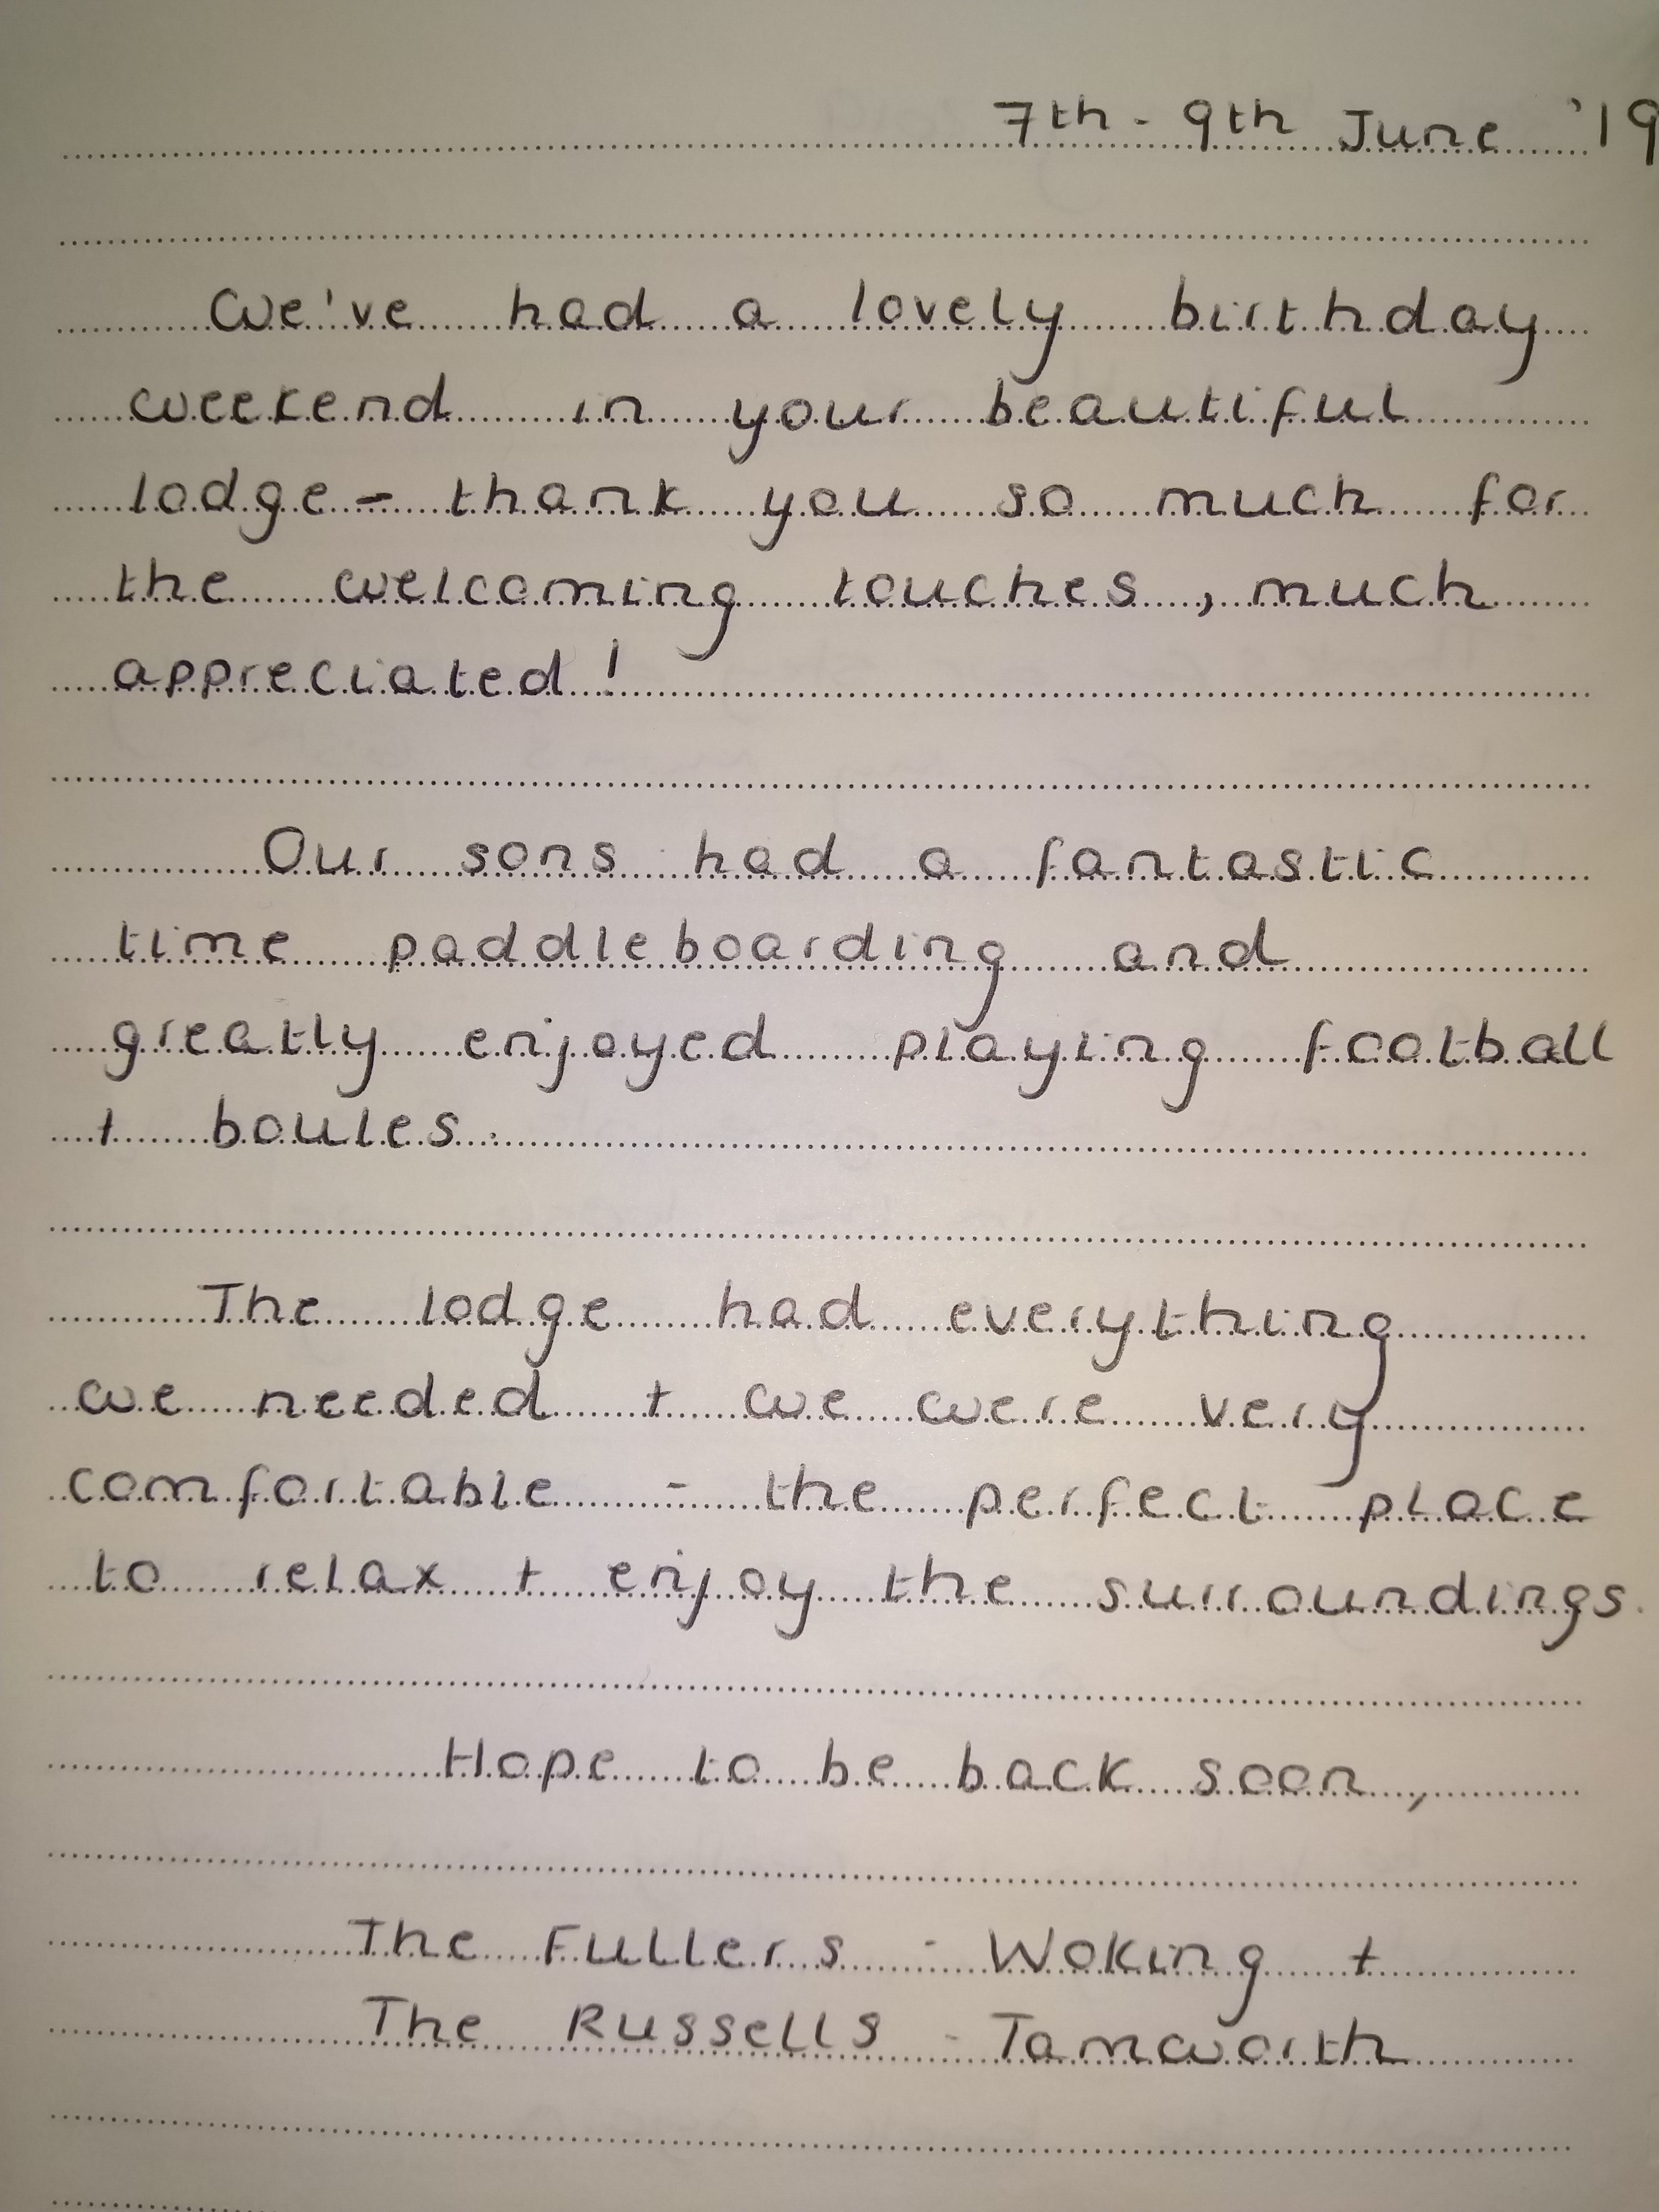 7th - 9th June '19
We've had a lovely birthday
weekend in your beautiful
lodge - thank you so much for
the welcoming touches, much
appreciated!
Our sons had a fantastic
time paddleboarding and
greatly enjoyed playing football
+ boules.
The lodge had everything
we needed + we were very
comfortable - the perfect place
to relax + enjoy the surroundings.
Hope to be back soon,
The Fullers - Woking +
The Russells - Tamworth